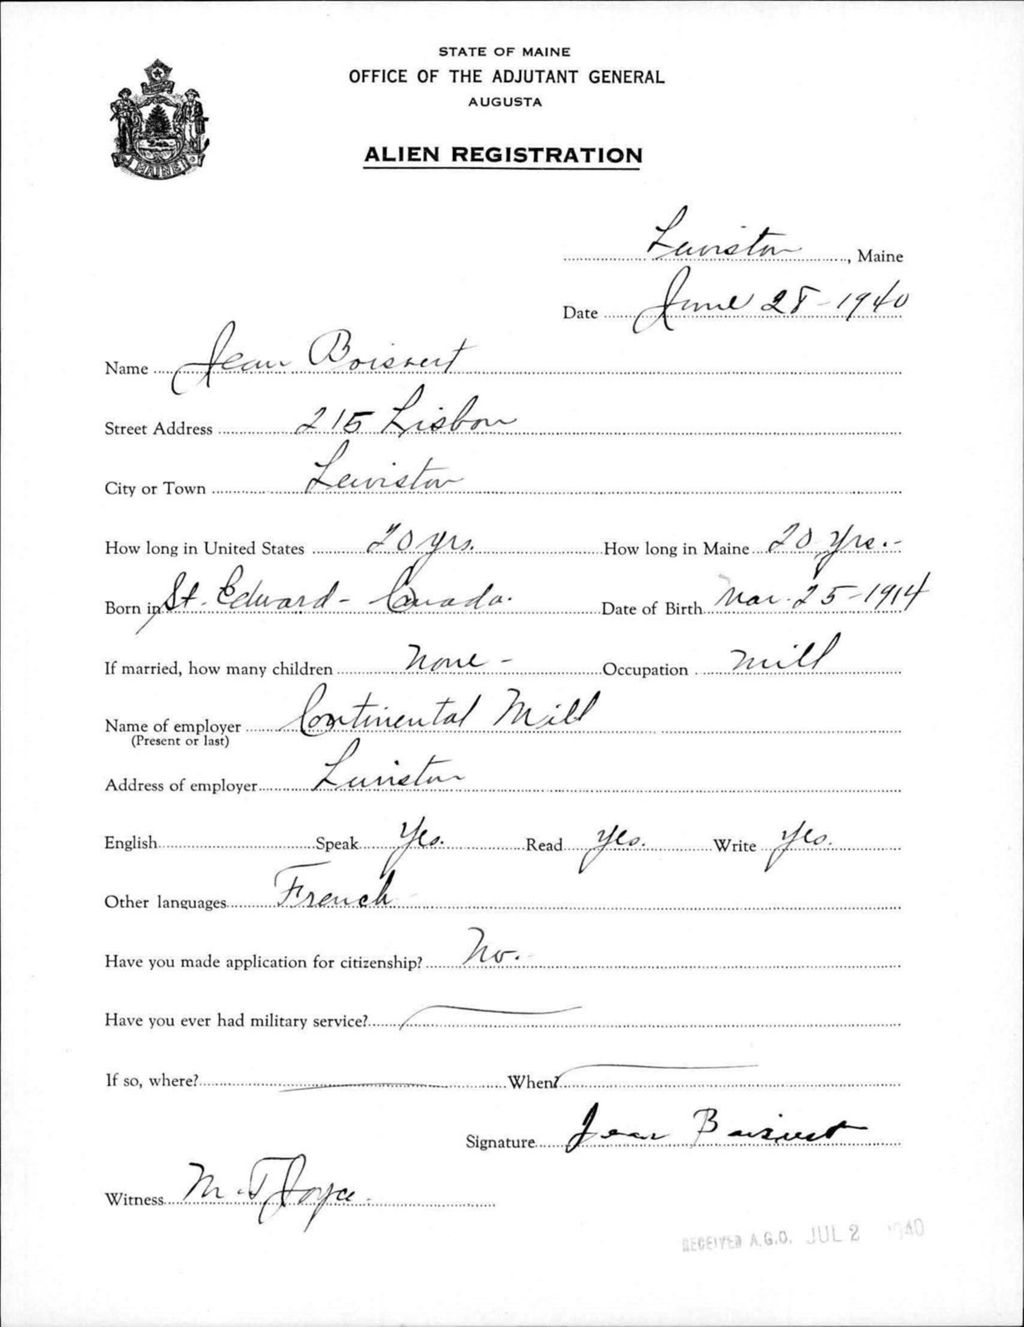 STATE OF MAINE
OFFICE OF THE ADJUTANT GENERAL
AUGUSTA
ALIEN REGISTRATION
MAINE
Lewiston, Maine
Date June 28-1940
Name Jean Boisvert
Street Address 215 Lisbon
City or Town Lewiston
How long in United States 20 yrs. How long in Maine 20 Yrs.-
Born in St. Edward - Canada. Date of Birth Mar. 25-1914
If married, how many children None - Occupation Mill
Name of employer Continental Mill
(Present or last)
Address of employer Lewiston
English Speak Yes. Read Yes. Write Yes.
Other languages French
Have you made application for citizenship? No.
Have you ever had military service?
If so, where? When?
Signature Jean Boisvert
Witness M. T. Joyce
RECEIVED A.G.O. JUL 2 1940